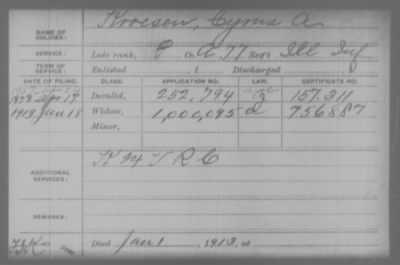 NAME OF SOLDIER: Kroesen, Cyrus A
SERVICE: Late rank, P Co. A, 77 Reg't Ill Inf
TERM OF SERVICE: Enlisted , 1 Discharged
DATE OF FILING. CLASS. APPLICATION NO. LAW. CERTIFICATE NO.
Apr 17 Invalid, 252,794 157.311
1913 Jan 18 Widow, 1,000,095 756887
Minor,
ADDITIONAL SERVICES: K 24 V R C
REMARKS:
Died Jan 1, 1913, at